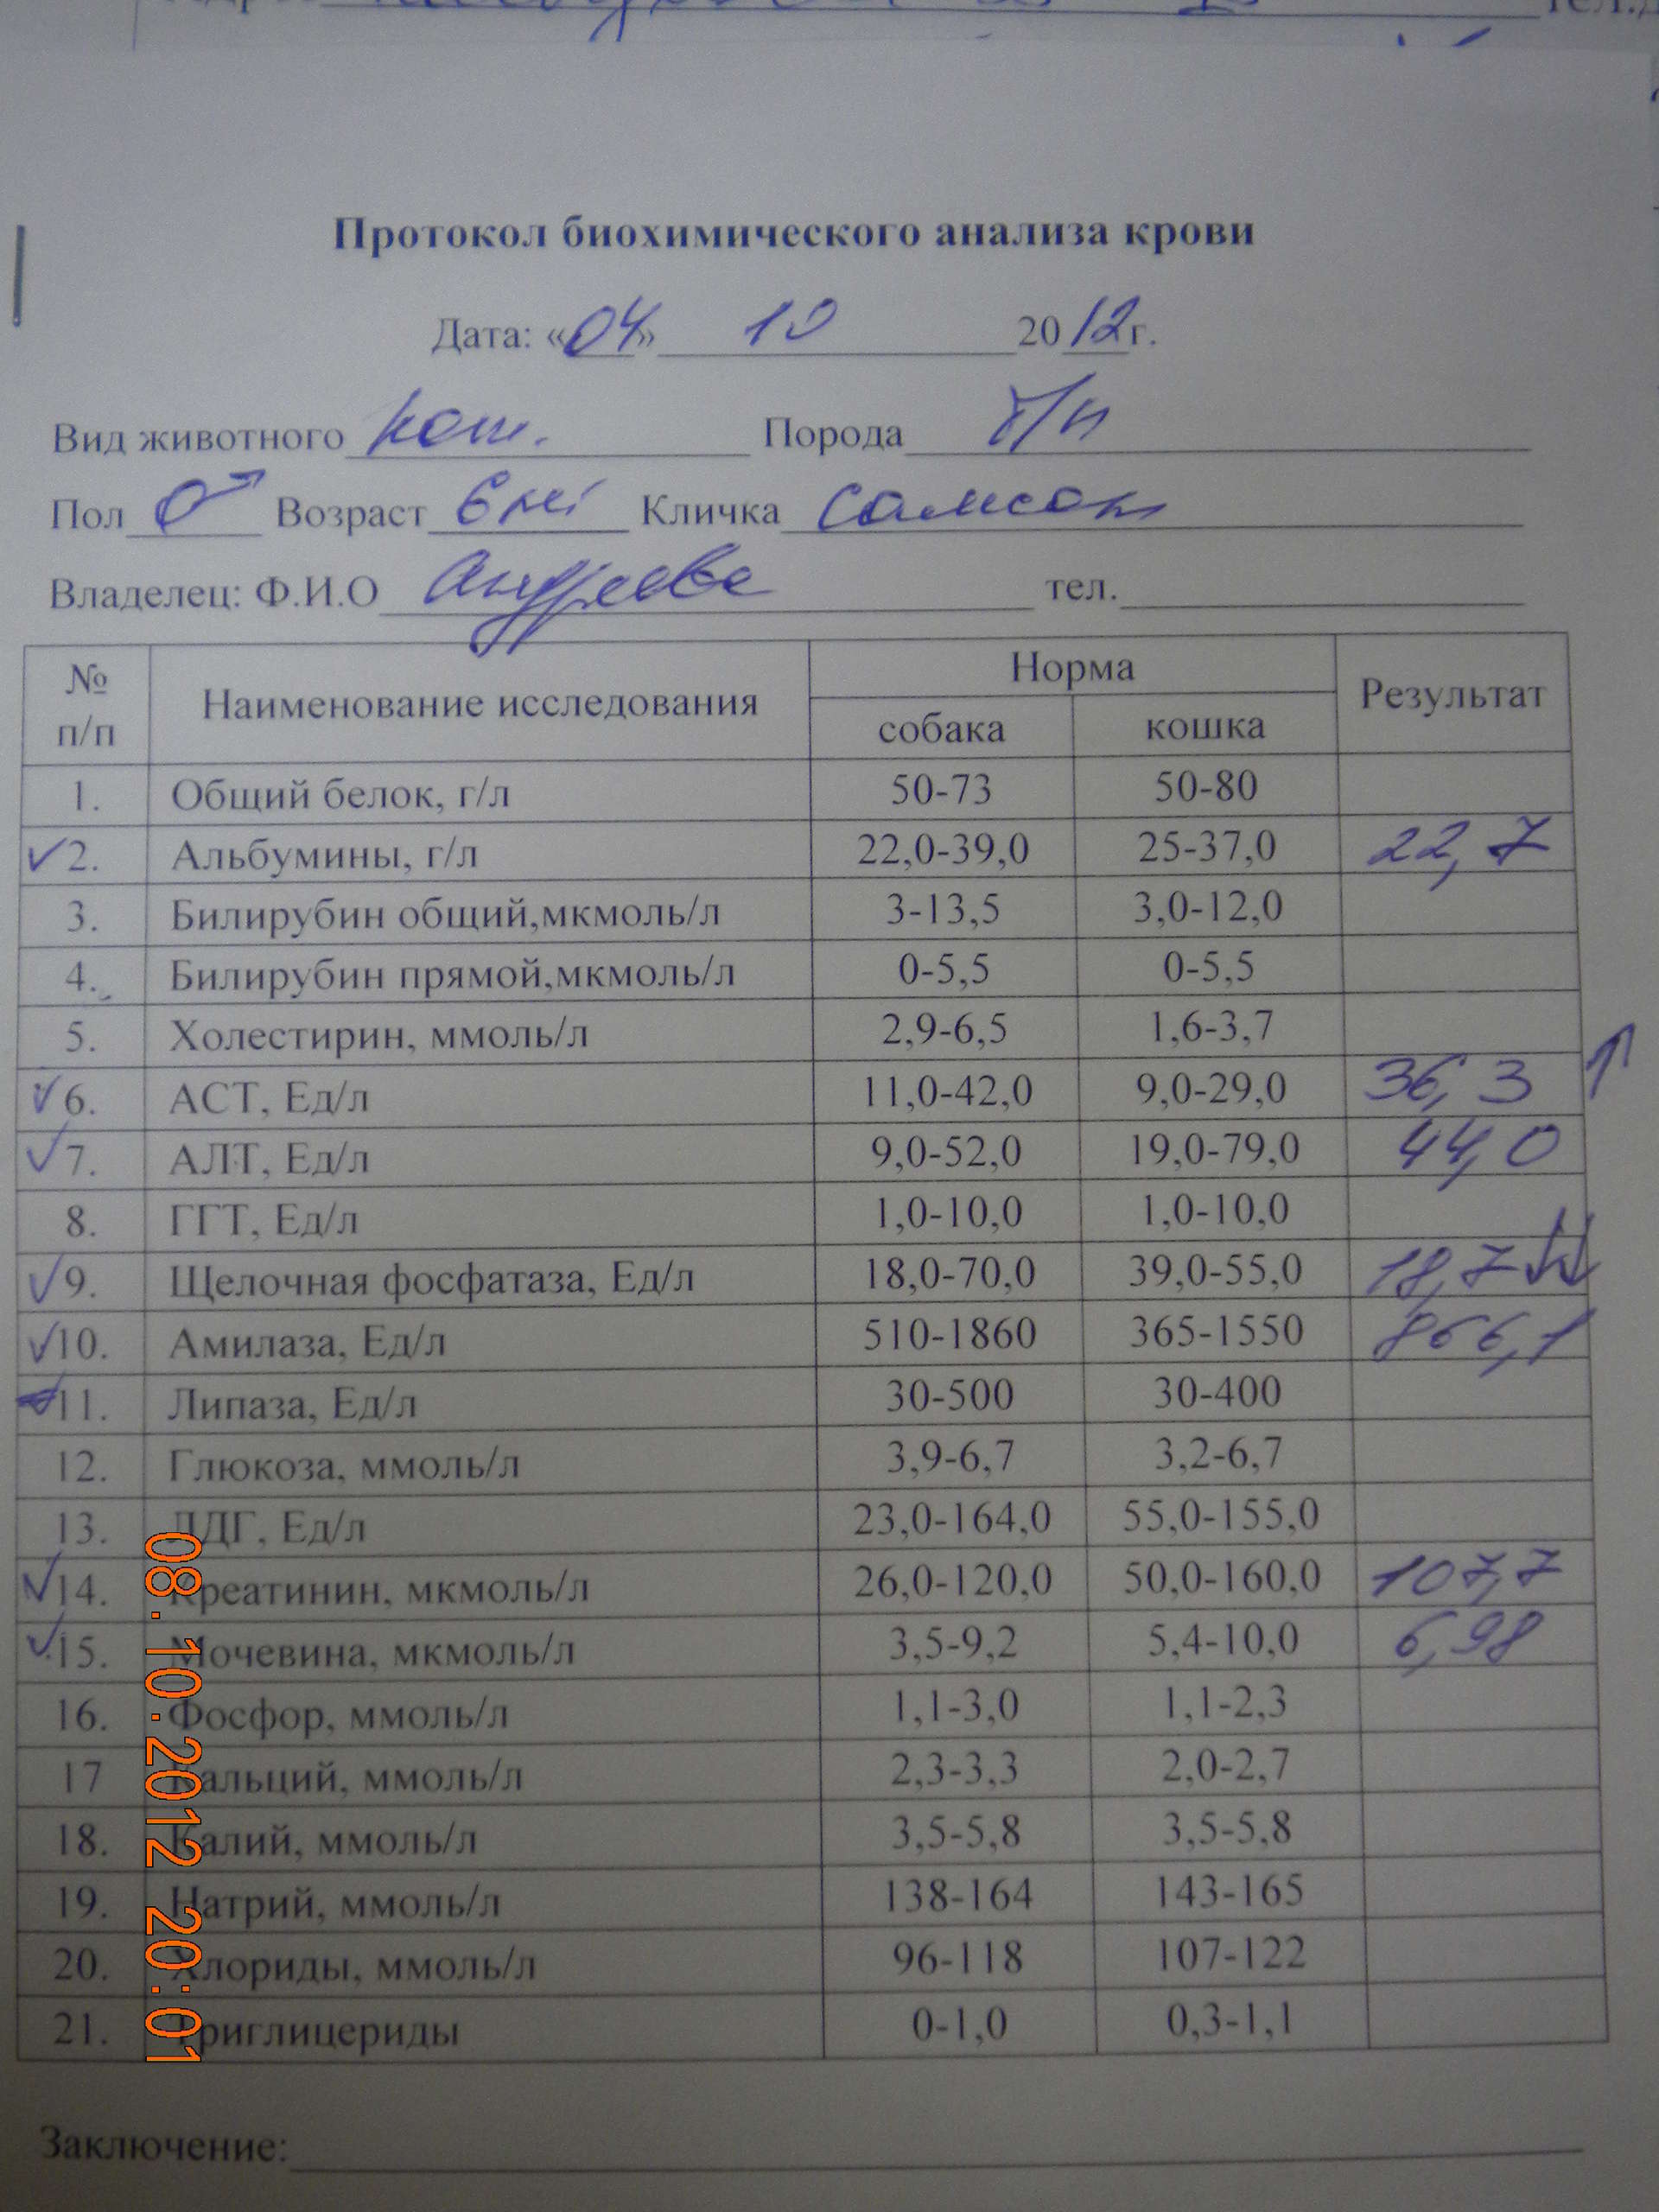 Протокол биохимического анализа крови
Дата: «04» 10 2012г.
Вид животного кош. Порода б/п
Пол ♂ Возраст 6 Кличка Самсон
Владелец: Ф.И.О Андреева тел.
№ п/п Наименование исследования Норма Результат
собака кошка
1. Общий белок, г/л 50-73 50-80
✓2. Альбумины, г/л 22,0-39,0 25-37,0 22,7
3. Билирубин общий,мкмоль/л 3-13,5 3,0-12,0
4. Билирубин прямой,мкмоль/л 0-5,5 0-5,5
5. Холестирин, ммоль/л 2,9-6,5 1,6-3,7
✓6. АСТ, Ед/л 11,0-42,0 9,0-29,0 36,3 ↑
✓7. АЛТ, Ед/л 9,0-52,0 19,0-79,0 44,0
8. ГГТ, Ед/л 1,0-10,0 1,0-10,0
✓9. Щелочная фосфатаза, Ед/л 18,0-70,0 39,0-55,0 18,7 ↓↓
✓10. Амилаза, Ед/л 510-1860 365-1550 866,1
11. Липаза, Ед/л 30-500 30-400
12. Глюкоза, ммоль/л 3,9-6,7 3,2-6,7
13. ЛДГ, Ед/л 23,0-164,0 55,0-155,0
✓14. Креатинин, мкмоль/л 26,0-120,0 50,0-160,0 107,7
✓15. Мочевина, мкмоль/л 3,5-9,2 5,4-10,0 6,98
16. Фосфор, ммоль/л 1,1-3,0 1,1-2,3
17 Кальций, ммоль/л 2,3-3,3 2,0-2,7
18. Калий, ммоль/л 3,5-5,8 3,5-5,8
19. Натрий, ммоль/л 138-164 143-165
20. Хлориды, ммоль/л 96-118 107-122
21. Триглицериды 0-1,0 0,3-1,1
Заключение:
08.10.2012 20:01